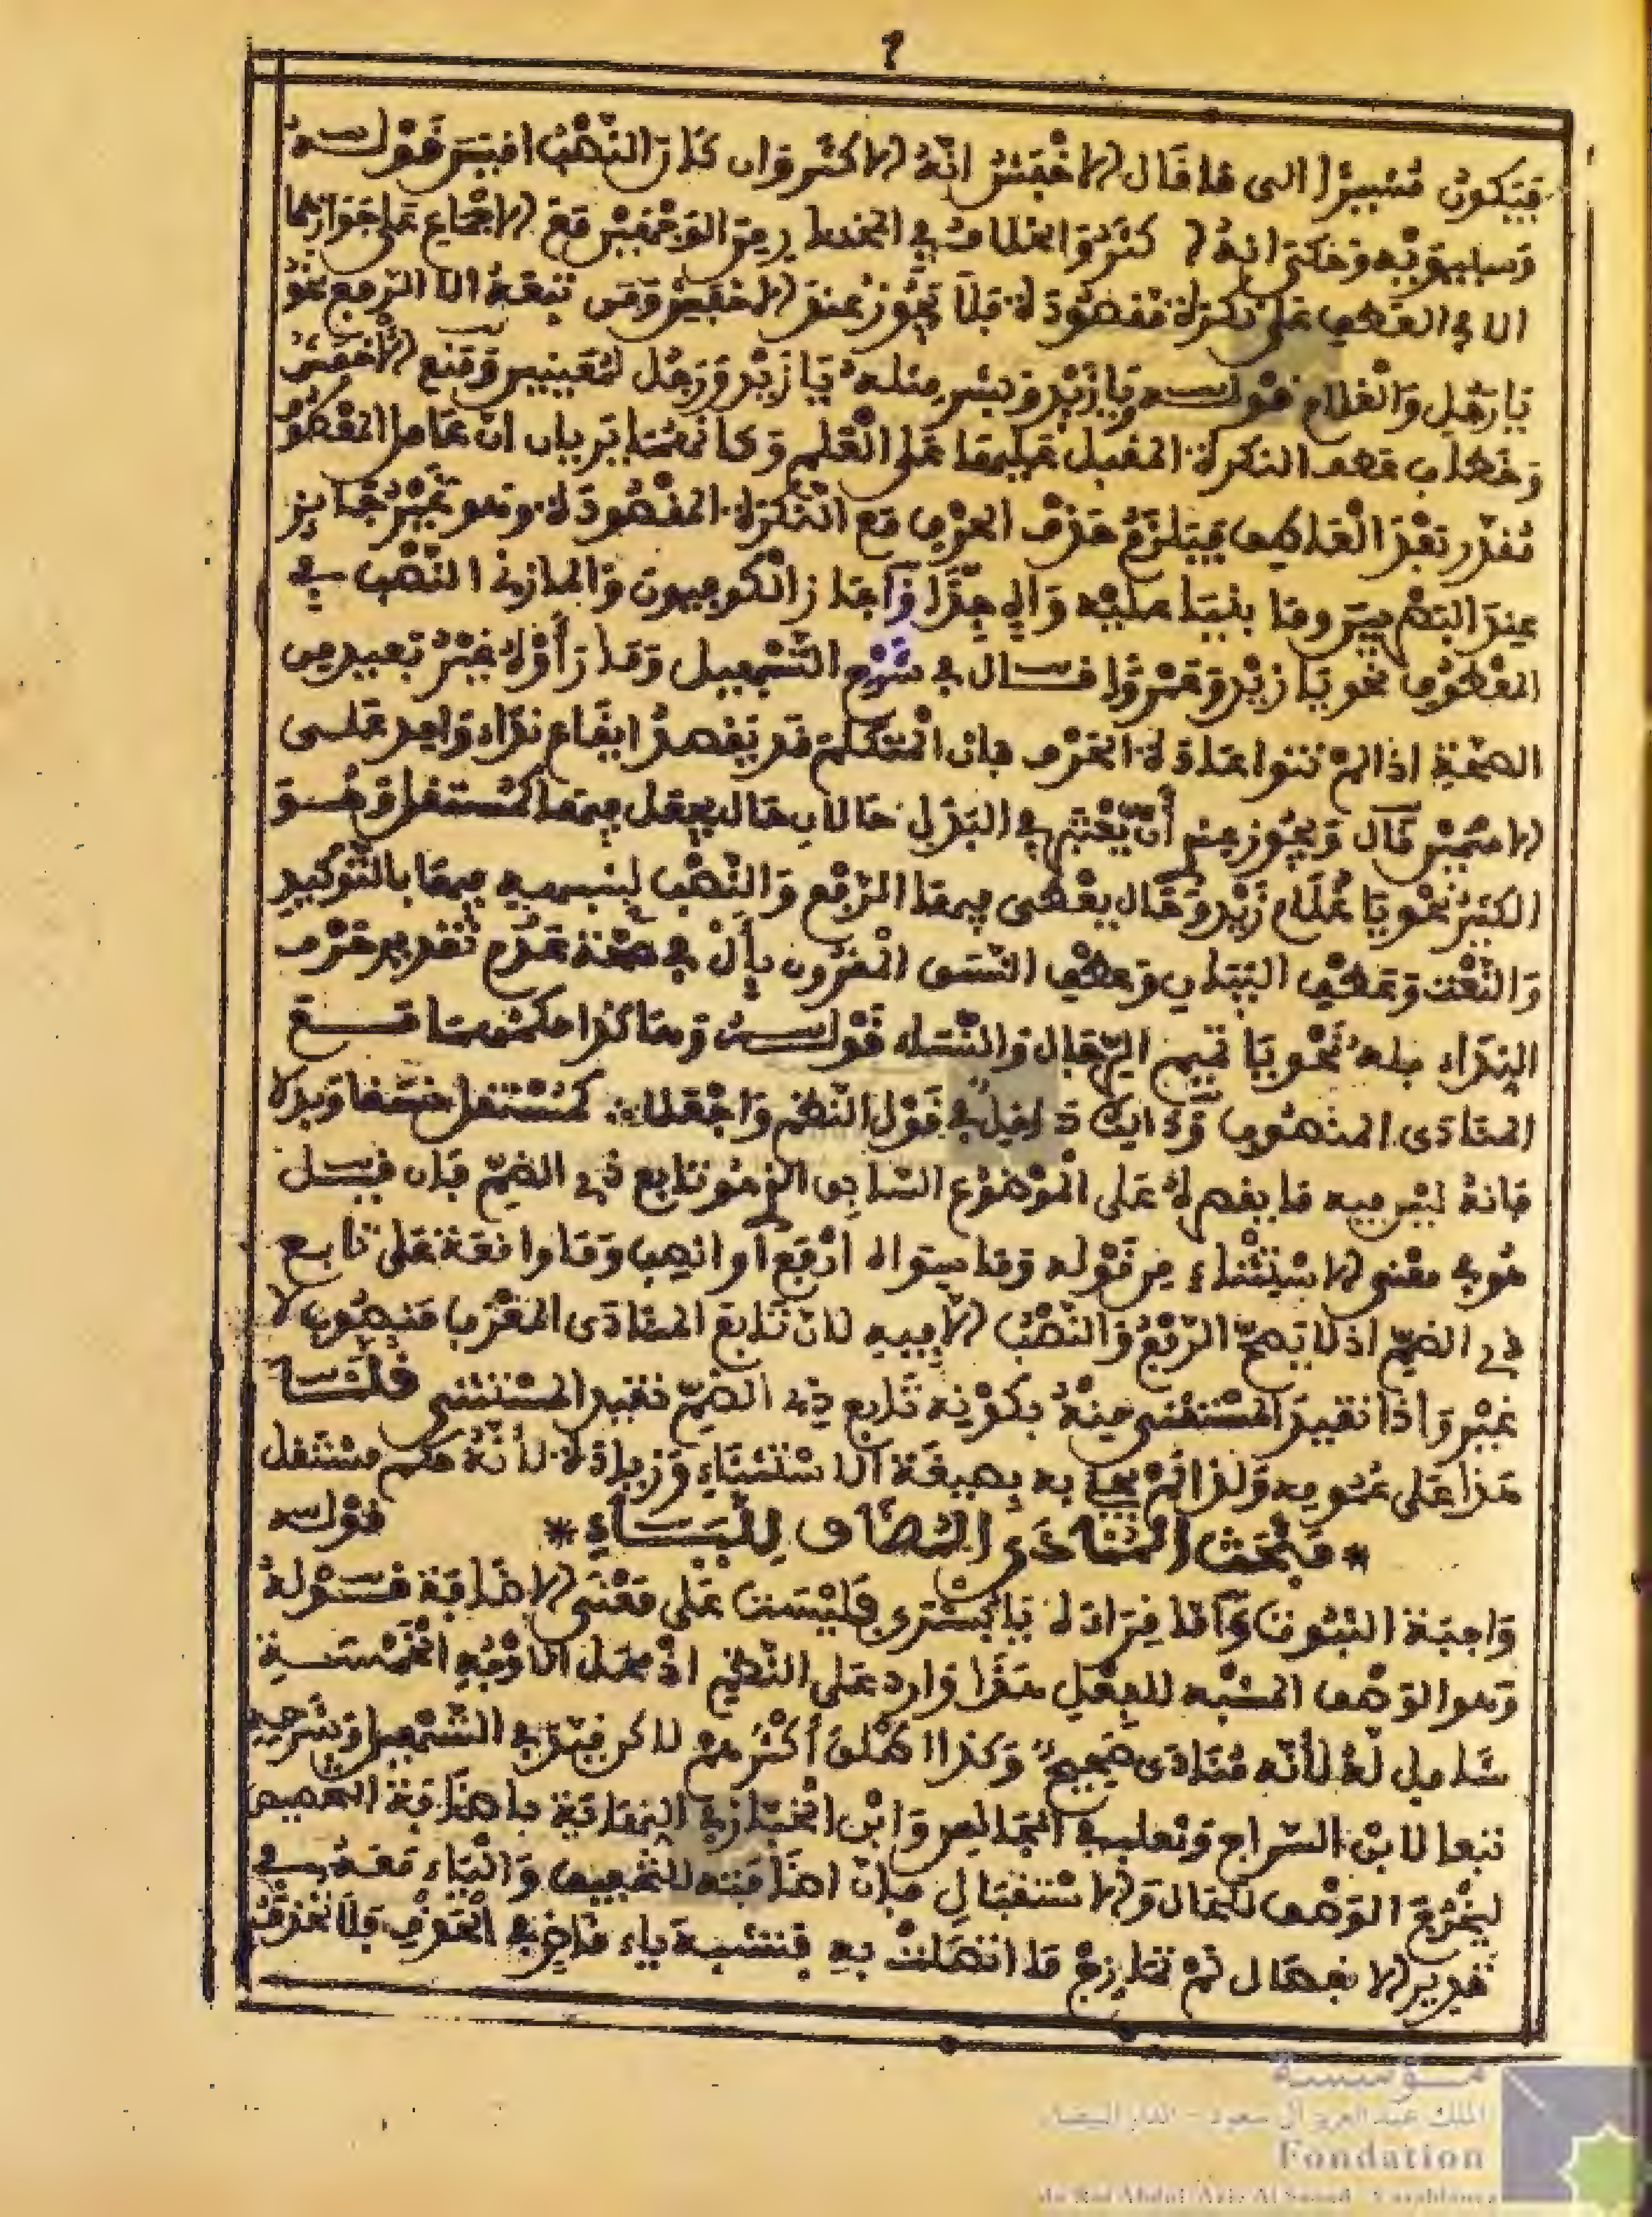 فيكون مشيرا الى ما قال الاخفش انه الاكثر وان كان النصب اقيس قوله
وسيبويه وحكى انه اكثر والخلاف في المختار من الوجهين مع الاجماع على جوازهما
الا في العطف على نكرة مقصودة فلا يجوز عند الاخفش ومن تبعه الا الرفع نحو
يا رجل والغلام قوله ويا زيد وبشر مثله يا زيد ورجل لمعينين ومنع الاخفش
وخطاب عطف النكرة المقبل عليها على العلم وكانهما يريان ان عامل المعطوف
مقدر بعد العاطف فيلزم حذف الحرف مع النكرة المقصودة وهو غير جايز
عند البصريين وما بنيا عليه واه جدا واجاز الكوفيون والمازني النصب في
المعطوف نحو يا زيد وعمرا قال في شرح التسهيل وما رأوه غير بعيد من
الصحة اذا لم تنو اعادة الحرف فان المتكلم قد يقصد ايقاع نداء واحد على
الاسمين قال ويجوز عندي أن يعتبر في البدل حالان حال يجعل فيها كمستقل وهو
الكثير نحو يا غلام زيد وحال يعطى فيها الرفع والنصب لشبهه فيها بالتوكيد
والنعت وعطف البيان وعطف النسق المقرون بأل في صحة عدم تقدير حرف
النداء قبله نحو يا تميم الرجال والنساء قوله وهاكذا حكمهما مع
المنادى المنصوب وذالك داخل في قول النظم واجعلا كمستقل نسقا وبدلا
فانه ليس فيه ما يقصره على الموضوع السابق الذي هو تابع ذي الضم فان قيل
هو في معنى الاستثناء من قوله وما سواه ارفع أو انصب وما واقعة على تابع
ذي الضم اذ لا يصح الرفع والنصب الا فيه لان تابع المنادى المعرب منصوب لا
غير واذا تقيد المستثنى منه بكونه تابع ذي الضم تقيد المستثنى قلنا
هذا على عمومه ولذا لم يجئ به بصيغة الاستثناء وزيادة لأنه حكم مستقل
* مبحث المنادى المضاف للياء * قوله
واجبة الثبوت وأما قراءة يا بشرى فليست على معنى الاضافة قوله
وهو الوصف المشبه للفعل هذا وارد على النظم اذ محل الاوجه الخمسة
شامل له لأنه منادى صحيح وكذا اطلق أكثرهم لاكن قيد في التسهيل وشرحه
تبعا لابن السراج وثعلب في المجالس وابن الخباز في النهاية باضافة التخصيص
ليخرج الوصف للحال والاستقبال فان اضافته للتخفيف والياء معه في
تقدير الانفصال لم تمازج ما اتصلت به فتشبه ياء قاض في الحذف فلا تحذف
مؤسسة
الملك عبد العزيز آل سعود - الدار البيضاء
Fondation
du Roi Abdul-Aziz Al Saoud - Casablanca